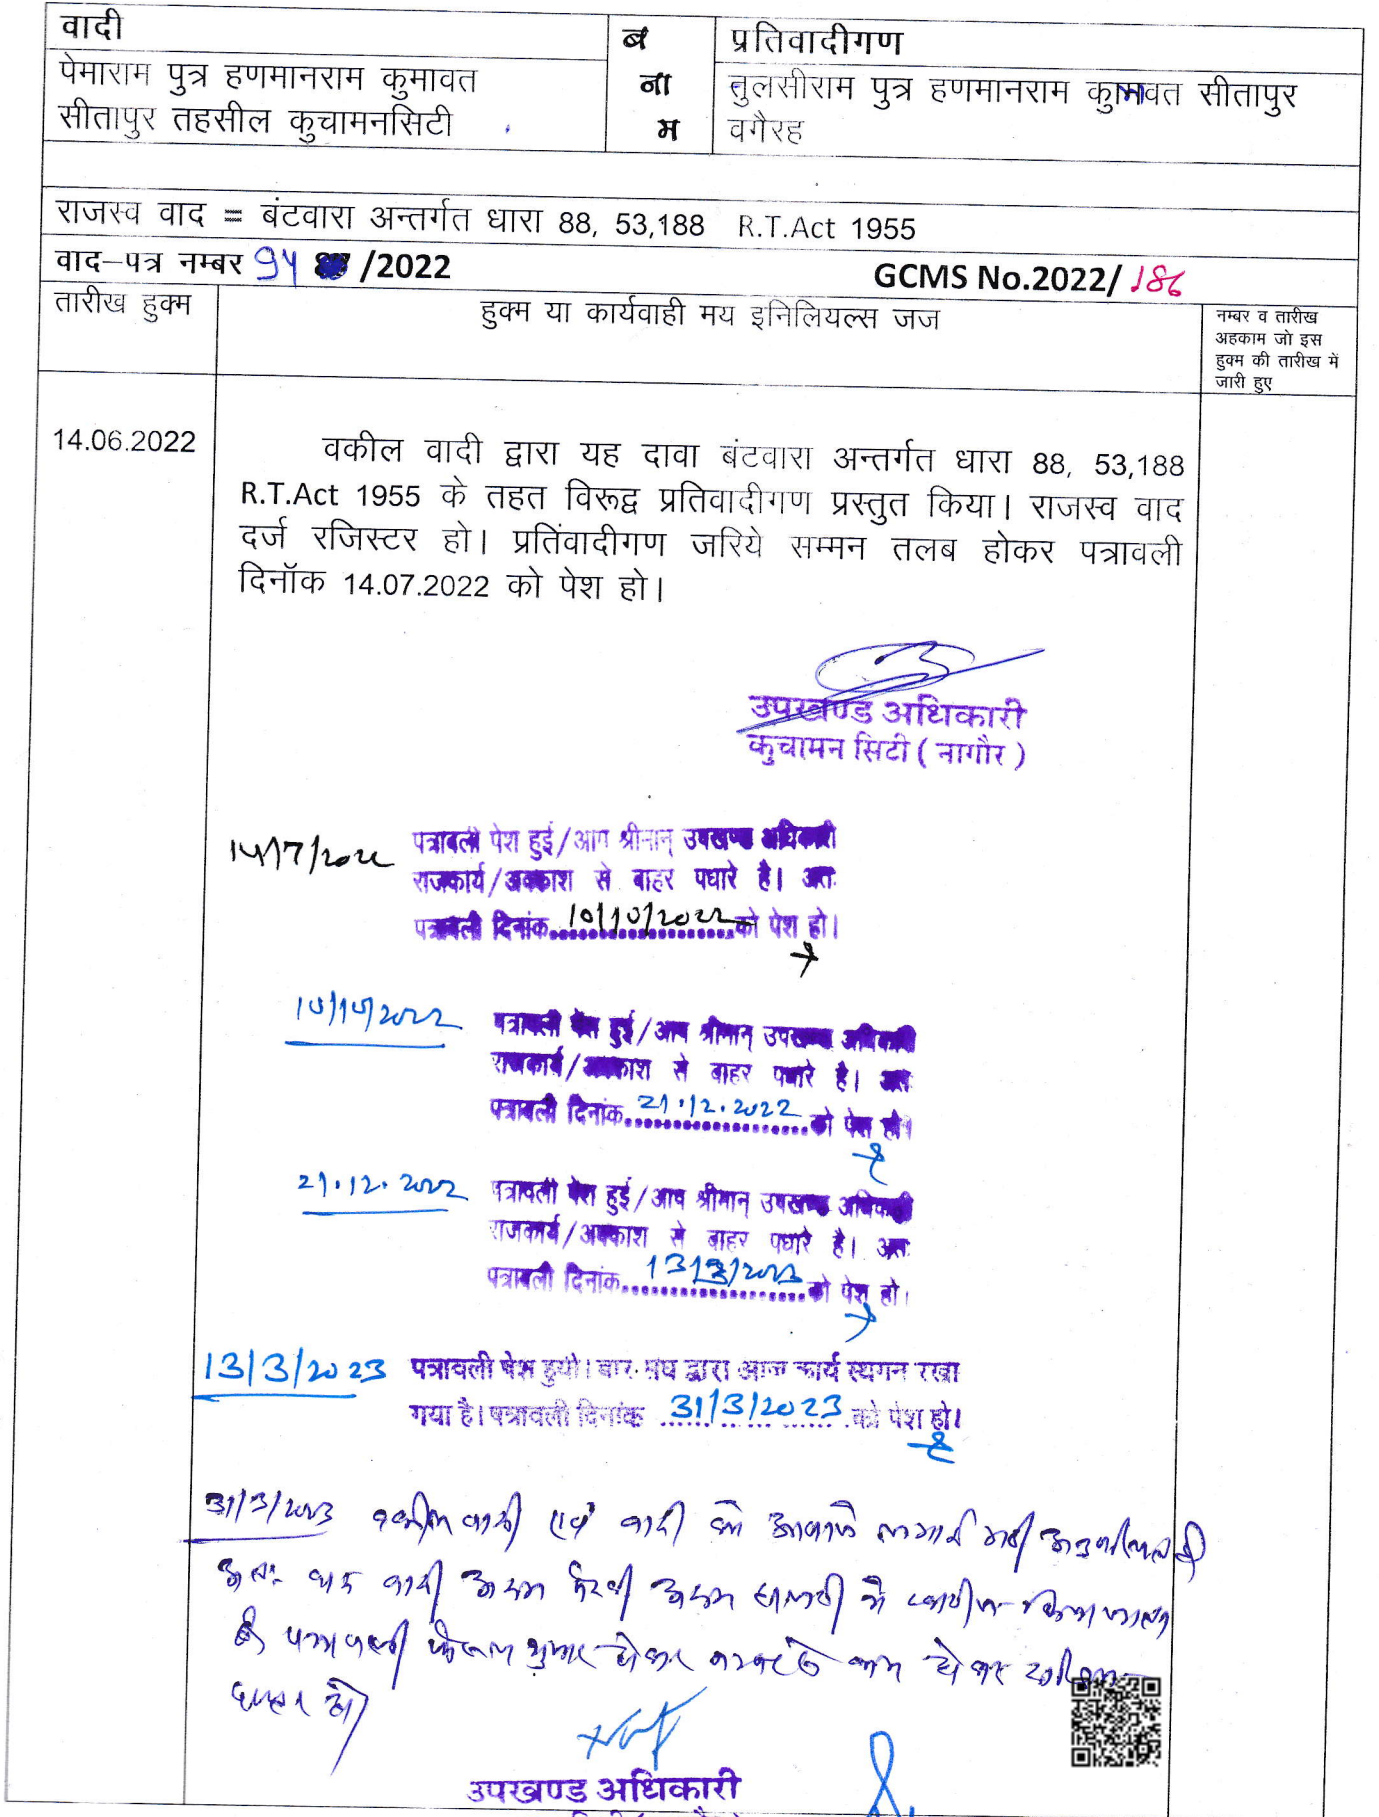 वादी
ब ना म
प्रतिवादीगण
पेमाराम पुत्र हणमानराम कुमावत
सीतापुर तहसील कुचामनसिटी
तुलसीराम पुत्र हणमानराम कुमावत सीतापुर
वगैरह
राजस्व वाद = बंटवारा अन्तर्गत धारा 88, 53,188 R.T.Act 1955
वाद–पत्र नम्बर 94 /2022
GCMS No.2022/186
तारीख हुक्म
हुक्म या कार्यवाही मय इनिलियल्स जज
नम्बर व तारीख
अहकाम जो इस
हुक्म की तारीख में
जारी हुए
14.06.2022
वकील वादी द्वारा यह दावा बंटवारा अन्तर्गत धारा 88, 53,188
R.T.Act 1955 के तहत विरूद्व प्रतिवादीगण प्रस्तुत किया। राजस्व वाद
दर्ज रजिस्टर हो। प्रतिंवादीगण जरिये सम्मन तलब होकर पत्रावली
दिनॉक 14.07.2022 को पेश हो।
उपखण्ड अधिकारी
कुचामन सिटी ( नागौर )
14/7/2022
पत्रावली पेश हुई/आप श्रीमान् उपखण्ड अधिकारी
राजकार्य/अवकाश से बाहर पधारे है। अतः
पत्रावली दिनांक 10/10/2022 को पेश हो।
10/10/2022
पत्रावली पेश हुई/आप श्रीमान् उपखण्ड अधिकारी
राजकार्य/अवकाश से बाहर पधारे है। अतः
पत्रावली दिनांक 21.12.2022 को पेश हो।
21.12.2022
पत्रावली पेश हुई/आप श्रीमान् उपखण्ड अधिकारी
राजकार्य/अवकाश से बाहर पधारे है। अतः
पत्रावली दिनांक 13/3/2023 को पेश हो।
13/3/2023
पत्रावली पेश हुयी। बार संघ द्वारा आज कार्य स्थगन रखा
गया है। पत्रावली दिनांक 31/3/2023 को पेश हो।
31/3/2023 वकील वादी एवं वादी को आवाजे लगायी गयी
अतः वाद वादी अदम पैरवी अदम हाजरी में खारीज किया जाता
है पत्रावली फैसल शुमार होकर नम्बर से कम होकर दाखिल
दफ्तर हो
उपखण्ड अधिकारी